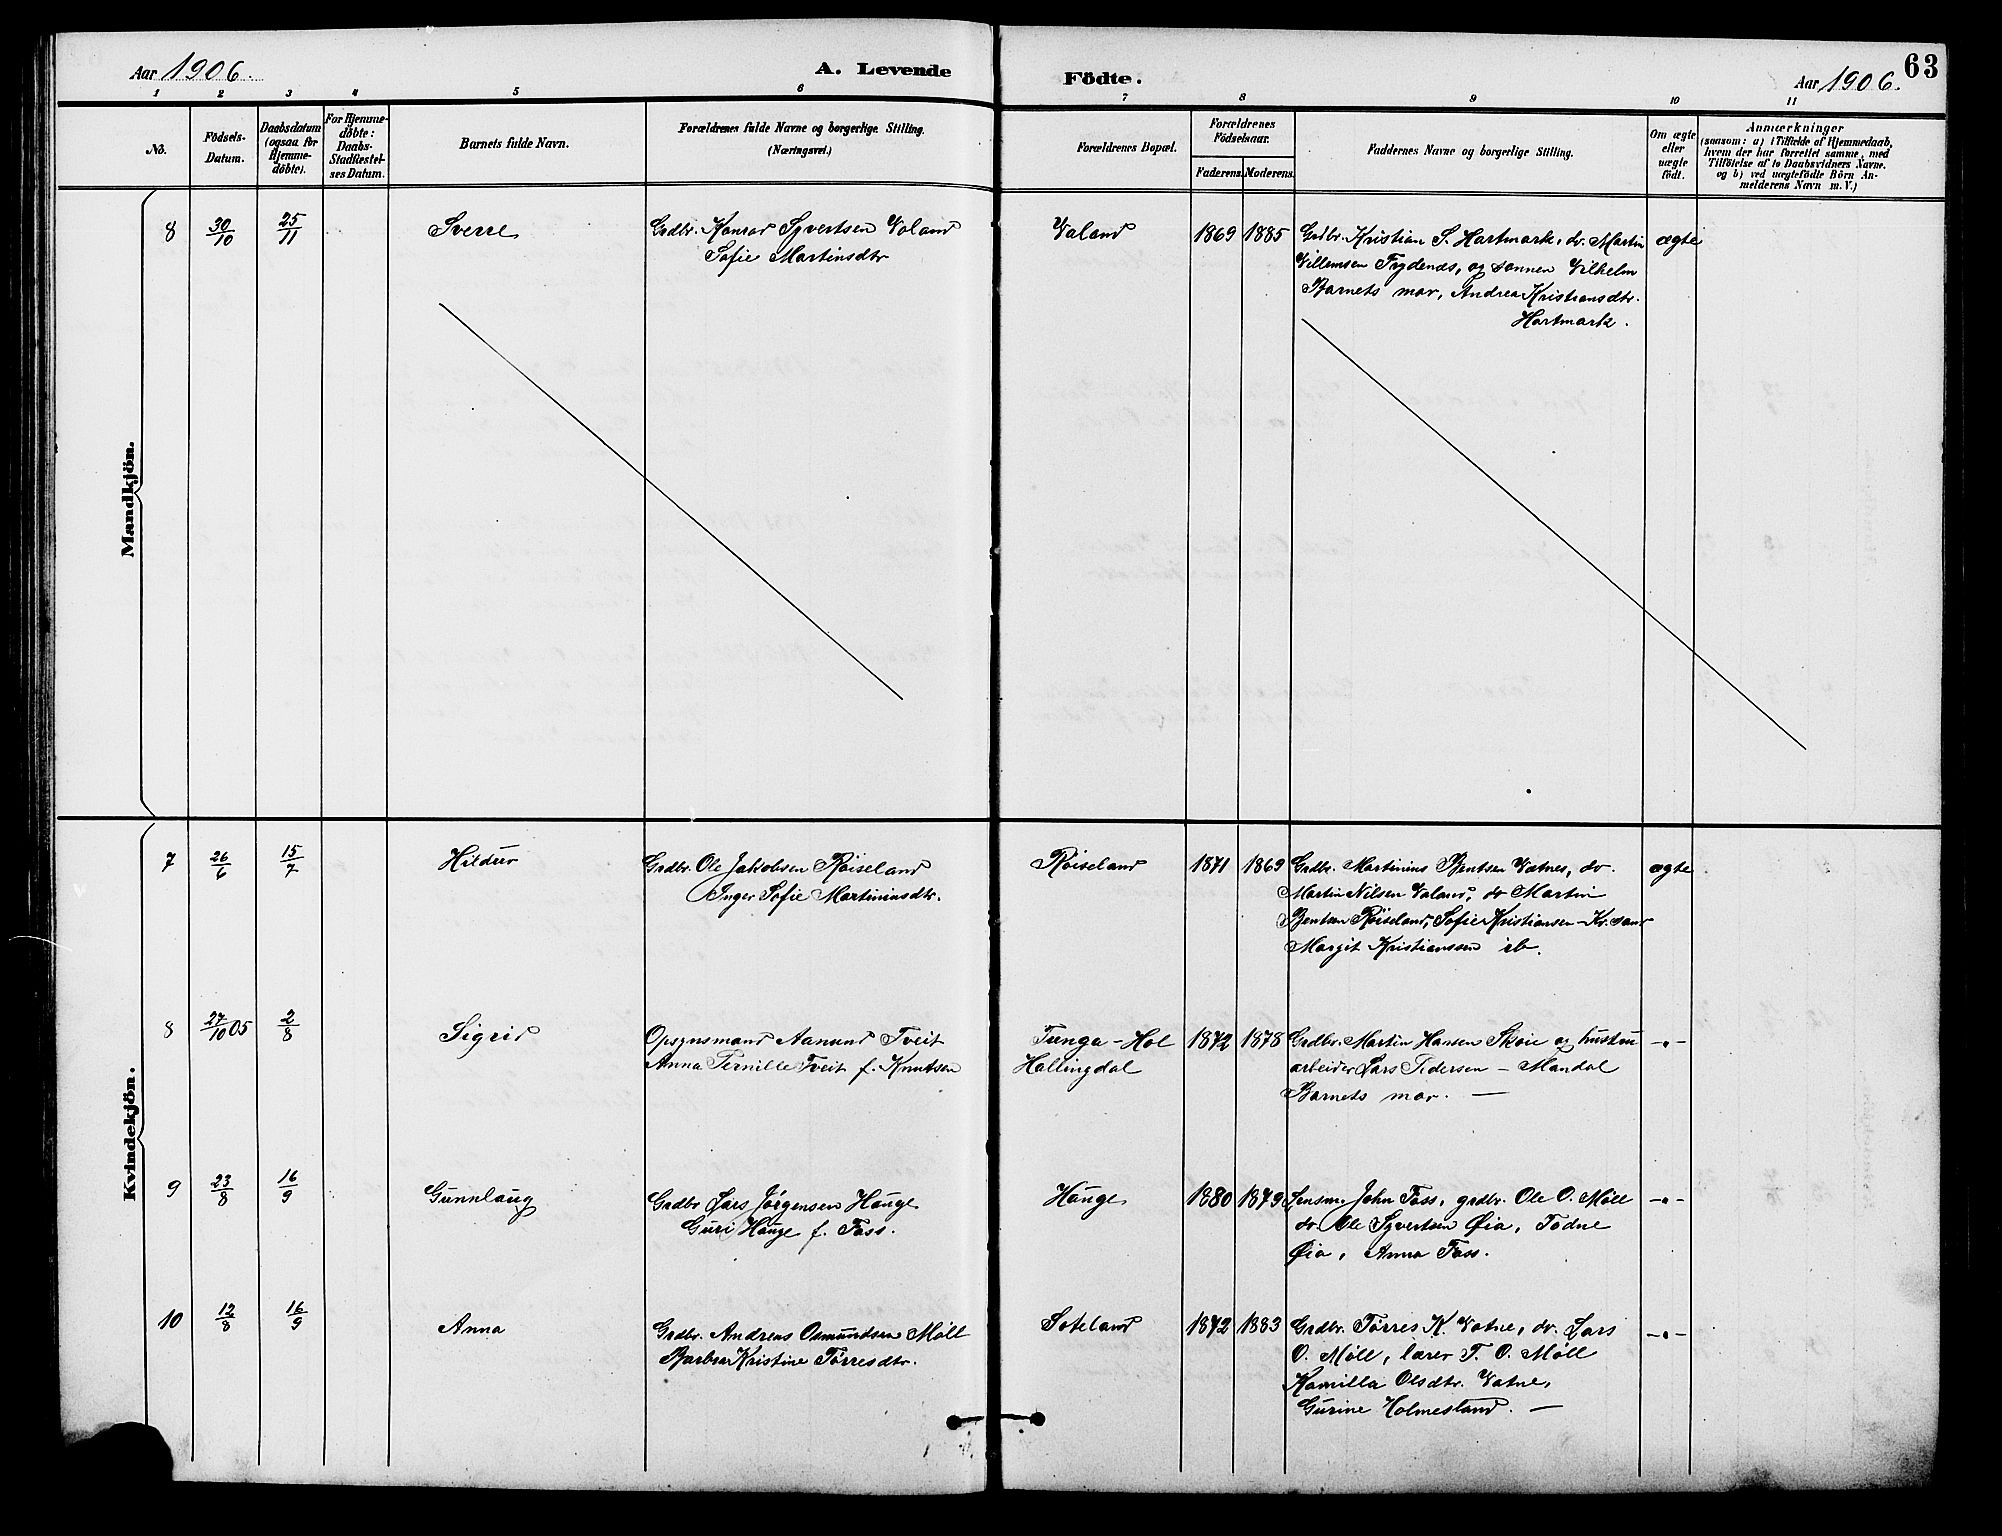 Aar 1906.
A. Levende Födte.
Aar 1906.
63
1 2 3 4 5 6 7 8 9 10 11
No.
Födsels-
Datum.
Daabsdatum
(ogsaa for
Hjemme-
døbte).
For Hjemme-
døbte:
Daabs-
Stadfæstel-
ses Datum.
Barnets fulde Navn.
Forældrenes fulde Navne og borgerlige Stilling.
(Næringsvei.)
Forældrenes Bopæl.
Forældrenes
Födselsaar.
Faderens. Moderens.
Faddernes Navne og borgerlige Stilling.
Om ægte
eller
uægte
født.
Anmærkninger
(saasom: a) i Tilfælde af Hjemmedaab,
hvem der har forrettet samme, med
Tilföielse af to Daabsvidners Navne.
og b) ved uægtefödte Börn An-
melderens Navn m. V.)
Mandkjön.
8 30/10 25/11 Sverre Grdbr. Konrad Syvertsen Valand Valand 1869 1885 Grdbr. Kristian S. Hartmark, do. Martin ægte
Sofie Martinsdtr
Villemsen Trydenæs, og sønnen Vilhelm
Barnets mor, Andrea Kristiansdtr.
Hartmark.
Kvindekjön.
7 26/6 15/7 Hildur Grdbr. Ole Jakobsen Røiseland Røiseland 1871 1869 Grdbr. Martinius Bentsen Vatnes, do. ægte
Inger Sofie Martiniusdtr.
Martin Nilsen Valand, do Martin
Bentsen Røiseland, Sofie Kristiansen - Kr.sand
Margit Kristianssen ib.
8 27/10 05 2/8 Sigrid Opsynsmand Aanund Tveit Tunga - Hol 1872 1878 Grdbr. Martin Hansen Skoie og hustru -"-
Anna Pernille Tveit f. Knutsen Hallingdal arbeider Lars Pedersen - Mandal
Barnets mor. —
9 23/8 16/9 Gunnlaug Grdbr Lars Jørgensen Hauge Hauge 1880 1879 Lensm. John Foss, grdbr. Ole O. Møll -"-
Guri Hauge f. Foss.
do. Ole Syvertsen Øia, Todne
Øia, Anna Foss.
10 12/8 16/9 Anna Grdbr. Andreas Osmundsen Møll Soteland 1872 1883 Grdbr. Tørres K. Vatne, do. Lars -"-
Barbra Kristine Tørresdtr.
O. Møll, lærer T. O. Møll
Kamilla Olsdtr. Vatne,
Gurine Holmesland. —